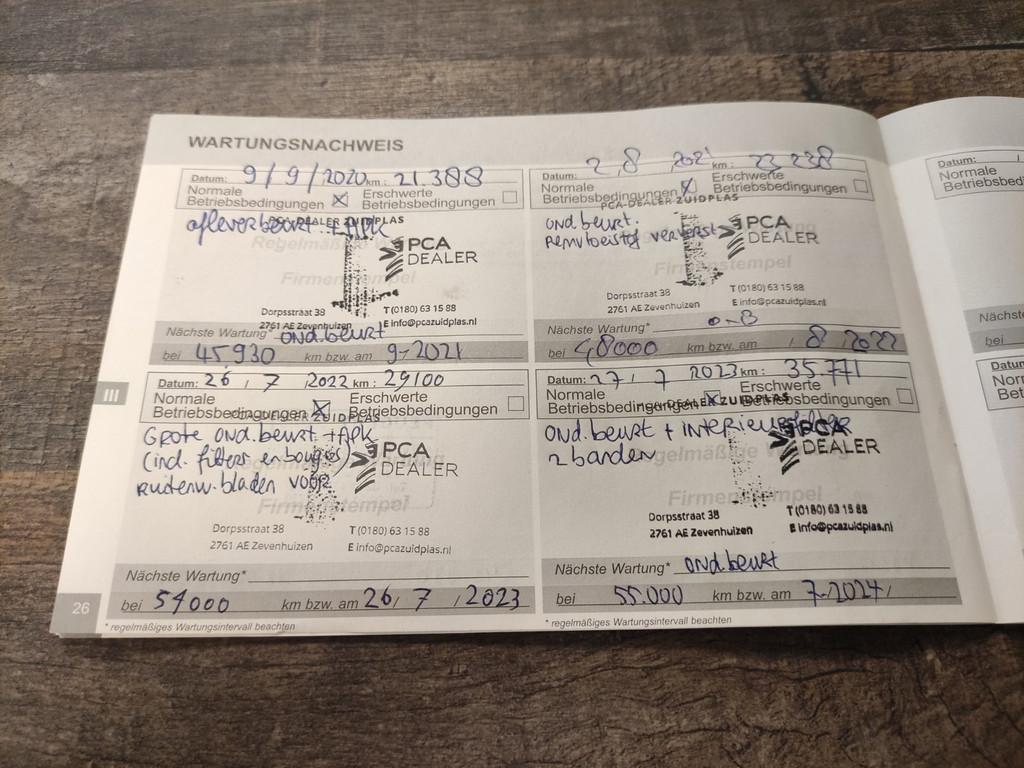 WARTUNGSNACHWEIS
Datum: 9/9/2020 km: 21.388
Normale Betriebsbedingungen ☒ Erschwerte Betriebsbedingungen ☐
afleverbeurt + APK
PCA-DEALER ZUIDPLAS
PCA DEALER
Firmenstempel
Dorpsstraat 38 T(0180) 63 15 88
2761 AE Zevenhuizen E info@pcazuidplas.nl
Nächste Wartung* ond.beurt
bei 45.930 km bzw. am 9-2021
Datum: 2, 8 2021 km: 23 238
Normale Betriebsbedingungen ☒ Erschwerte Betriebsbedingungen ☐
PCA-DEALER ZUIDPLAS
ond beurt.
remvloeistof ververst
PCA DEALER
Firmenstempel
Dorpsstraat 38 T(0180) 63 15 88
2761 AE Zevenhuizen E info@pcazuidplas.nl
Nächste Wartung* o-B
bei 48000 km bzw. am / 8 / 2022
III
Datum: 26 / 7 / 2022 km: 29100
Normale Betriebsbedingungen ☒ Erschwerte Betriebsbedingungen ☐
PCA-DEALER ZUIDPLAS
Grote ond.beurt + APK
(incl. filters en bougies)
ruitenw.bladen voor
PCA DEALER
Firmenstempel
Dorpsstraat 38 T(0180) 63 15 88
2761 AE Zevenhuizen E info@pcazuidplas.nl
Nächste Wartung*
bei 54000 km bzw. am 26/ 7 / 2023
* regelmäßiges Wartungsintervall beachten
Datum: 27/ 7 2023 km: 35.771
Normale Betriebsbedingungen ☒ Erschwerte Betriebsbedingungen ☐
PCA-DEALER ZUIDPLAS
ond.beurt + interieurfilter
2 banden
PCA DEALER
Firmenstempel
Dorpsstraat 38 T(0180) 63 15 88
2761 AE Zevenhuizen E info@pcazuidplas.nl
Nächste Wartung* ond.beurt
bei 55.000 km bzw. am 7-2024/
* regelmäßiges Wartungsintervall beachten
26
Datum:
Normale
Nächste
Datum: